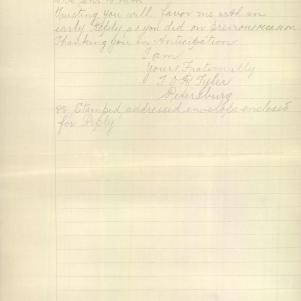 Trusting you will favor me with an
early Reply as you did on Previous occasion
Thanking you in Anticipation.
I am
Yours Fraternally
Tyler
Petersburg
Stamped addressed envelope enclosed
for Reply